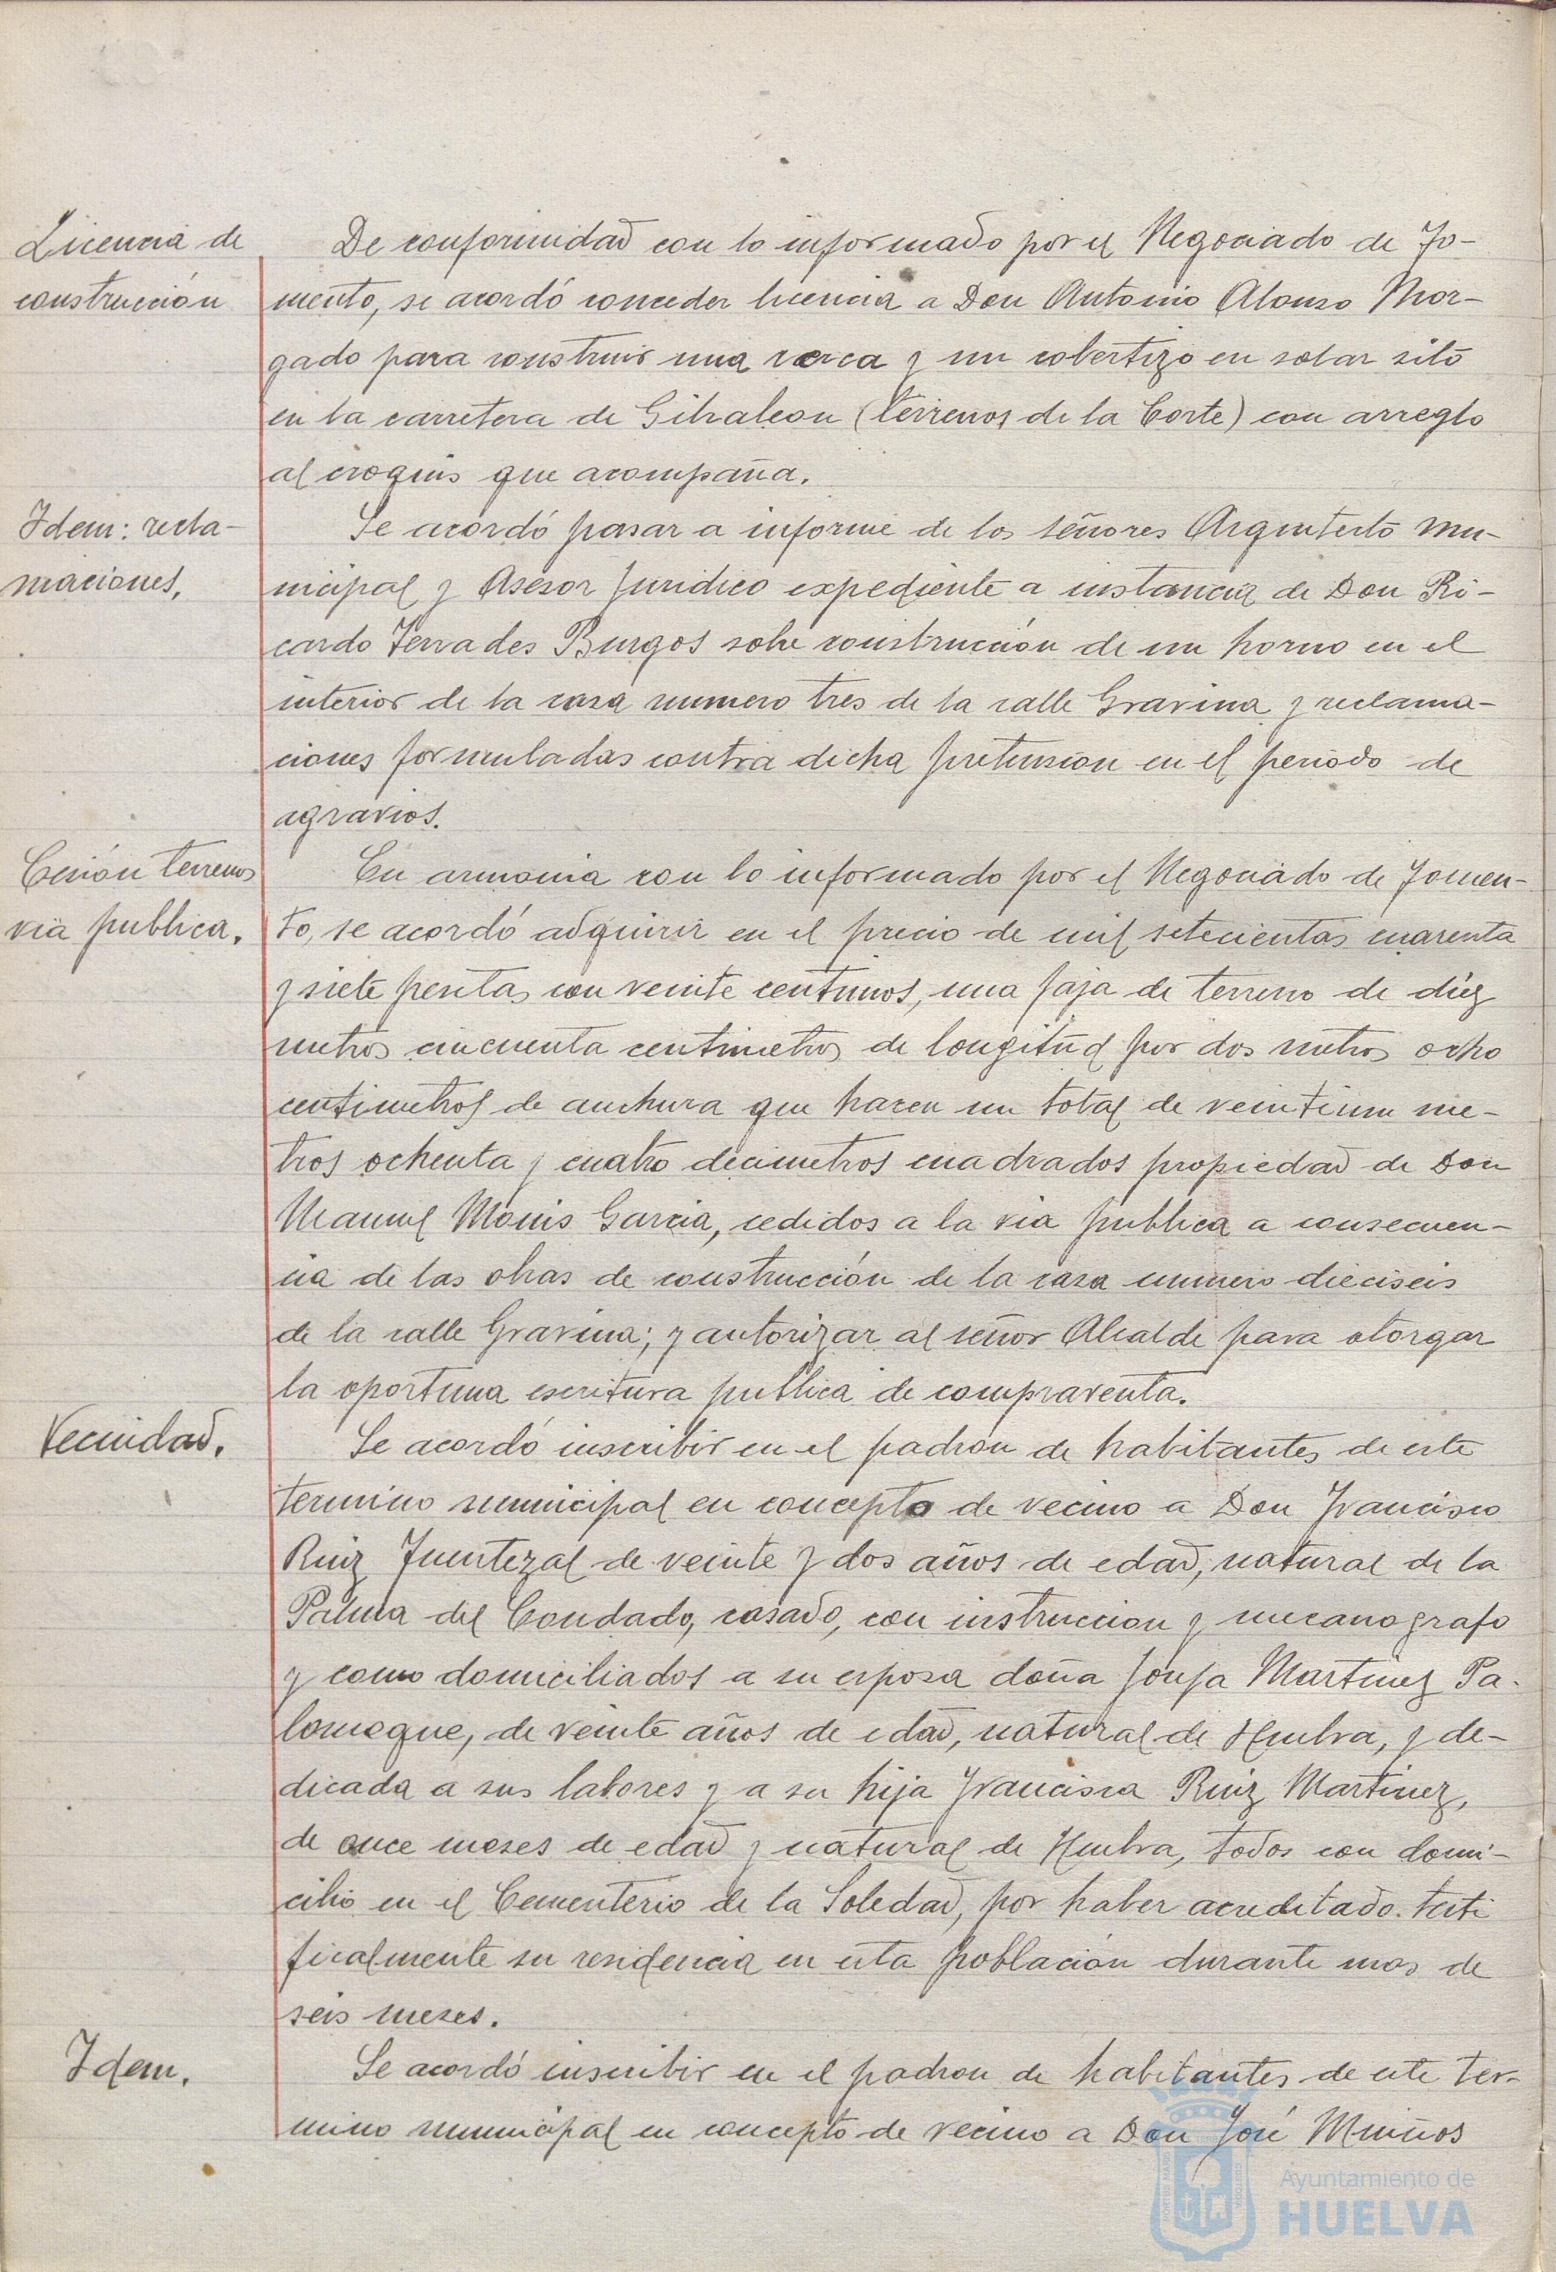 Licencia de
construcción
De conformidad con lo informado por el Negociado de Fo-
mento, se acordó conceder licencia a Don Antonio Alonso Mor-
gado para construir una cerca y un cobertizo en solar sito
en la carretera de Gibraleon (terrenos de la Corte) con arreglo
al croquis que acompaña.
Idem: recla-
maciones,
Se acordó pasar a informe de los señores Arquitecto Mu-
nicipal y Asesor Juridico expediente a instancia de Don Ri-
cardo Terrades Burgos sobre construcción de un horno en el
interior de la casa numero tres de la calle Gravina y reclama-
ciones formuladas contra dicha pretension en el periodo de
agravios.
Cesión terrenos
via publica.
En armonia con lo informado por el Negociado de Fomen-
to, se acordó adquirir en el precio de mil setecientas cuarenta
y siete pesetas con veinte centimos, una faja de terreno de diez
metros cincuenta centimetros de longitud por dos metros ocho
centimetros de anchura que hacen un total de veintiun me-
tros ochenta y cuatro decimetros cuadrados propiedad de Don
Manuel Monis Garcia, cedidos a la via publica a consecuen-
cia de las obras de construcción de la casa numero dieciseis
de la calle Gravina; y autorizar al señor Alcalde para otorgar
la oportuna escritura publica de compraventa.
Vecindad.
Se acordó inscribir en el padron de habitantes de este
termino municipal en concepto de vecino a Don Francisco
Ruiz Fuentezal de veinte y dos años de edad, natural de la
Palma del Condado, casado, con instruccion y mecanografo
y como domiciliados a su esposa doña Josefa Martinez Pa-
lomeque, de veinte años de edad, natural de Huelva, y de-
dicada a sus labores y a su hija Francisca Ruiz Martinez,
de once meses de edad y natural de Huelva, todos con domi-
cilio en el Cementerio de la Soledad, por haber acreditado testi
ficalmente su residencia en esta población durante mas de
seis meses.
Idem.
Se acordó inscribir en el padron de habitantes de este ter-
mino municipal en concepto de vecino a Don José Muiños
Ayuntamiento de
HUELVA